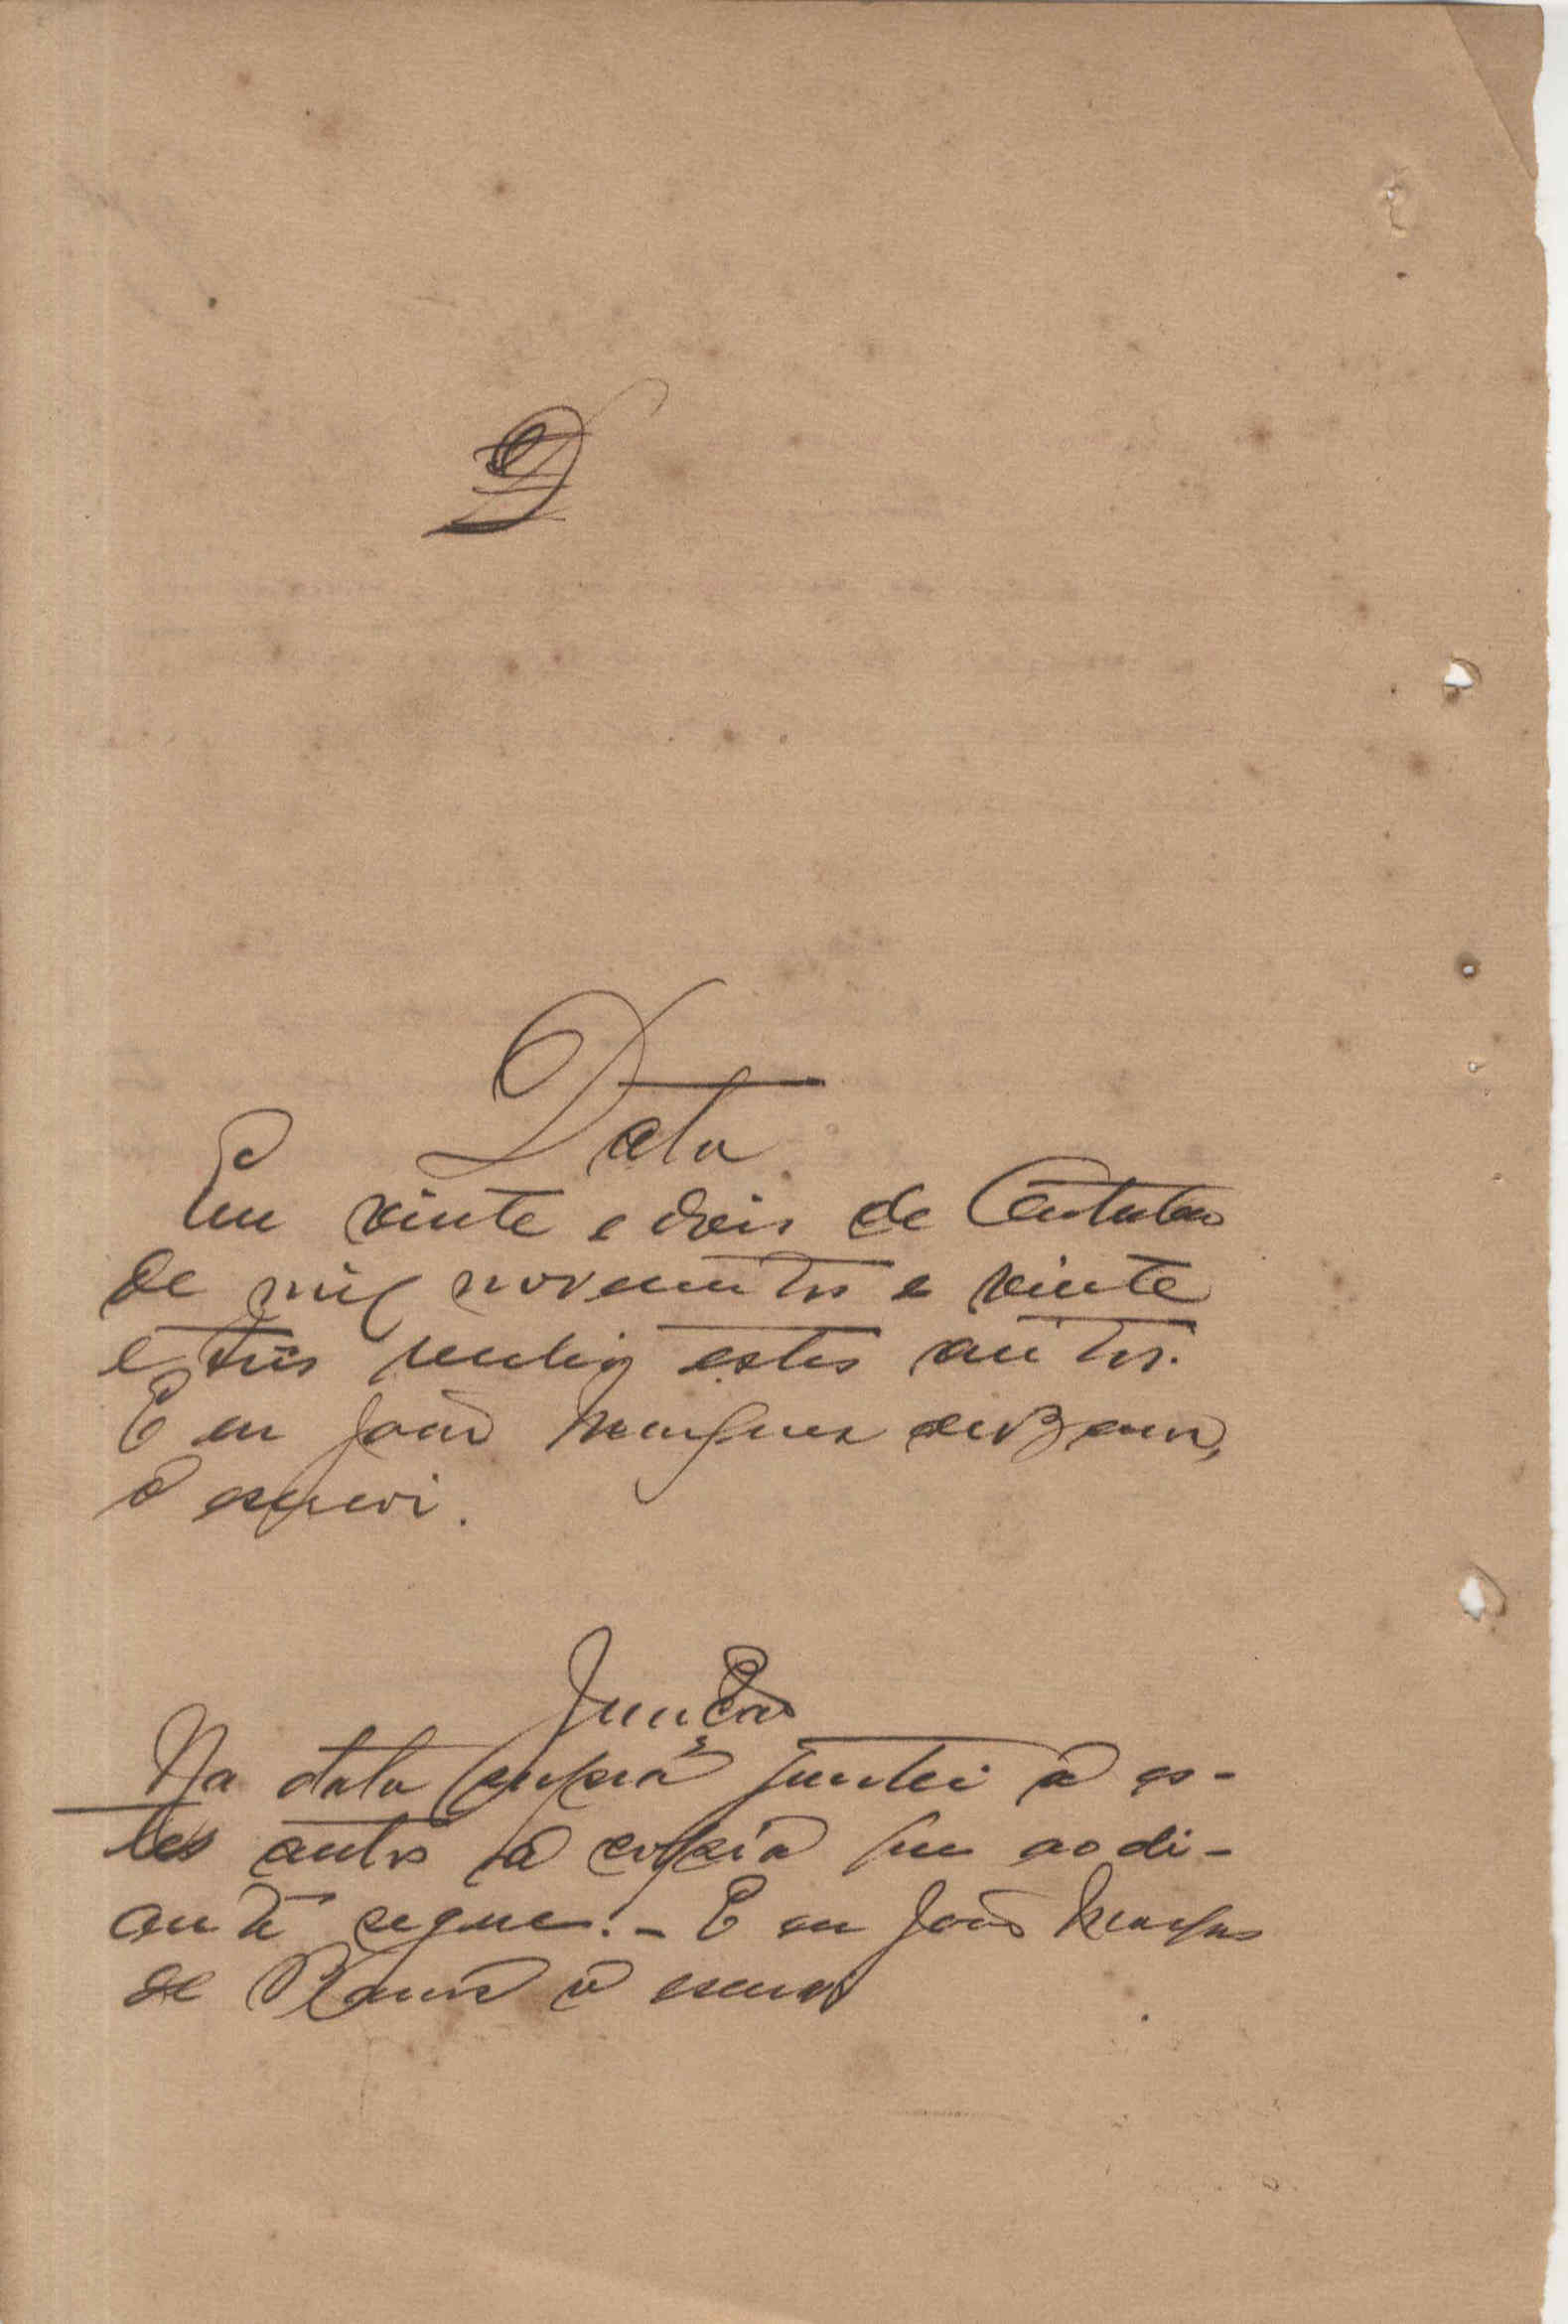 D
Data
Em vinte e dois de Outubro
de mil novecentos e vinte
e tres recebi estes autos.
E eu João Marques de
o escrevi.
Juncção
Na data supra juntei a es-
tes autos a copia que aodi-
ante segue. - E eu João Marques
de o escrevi